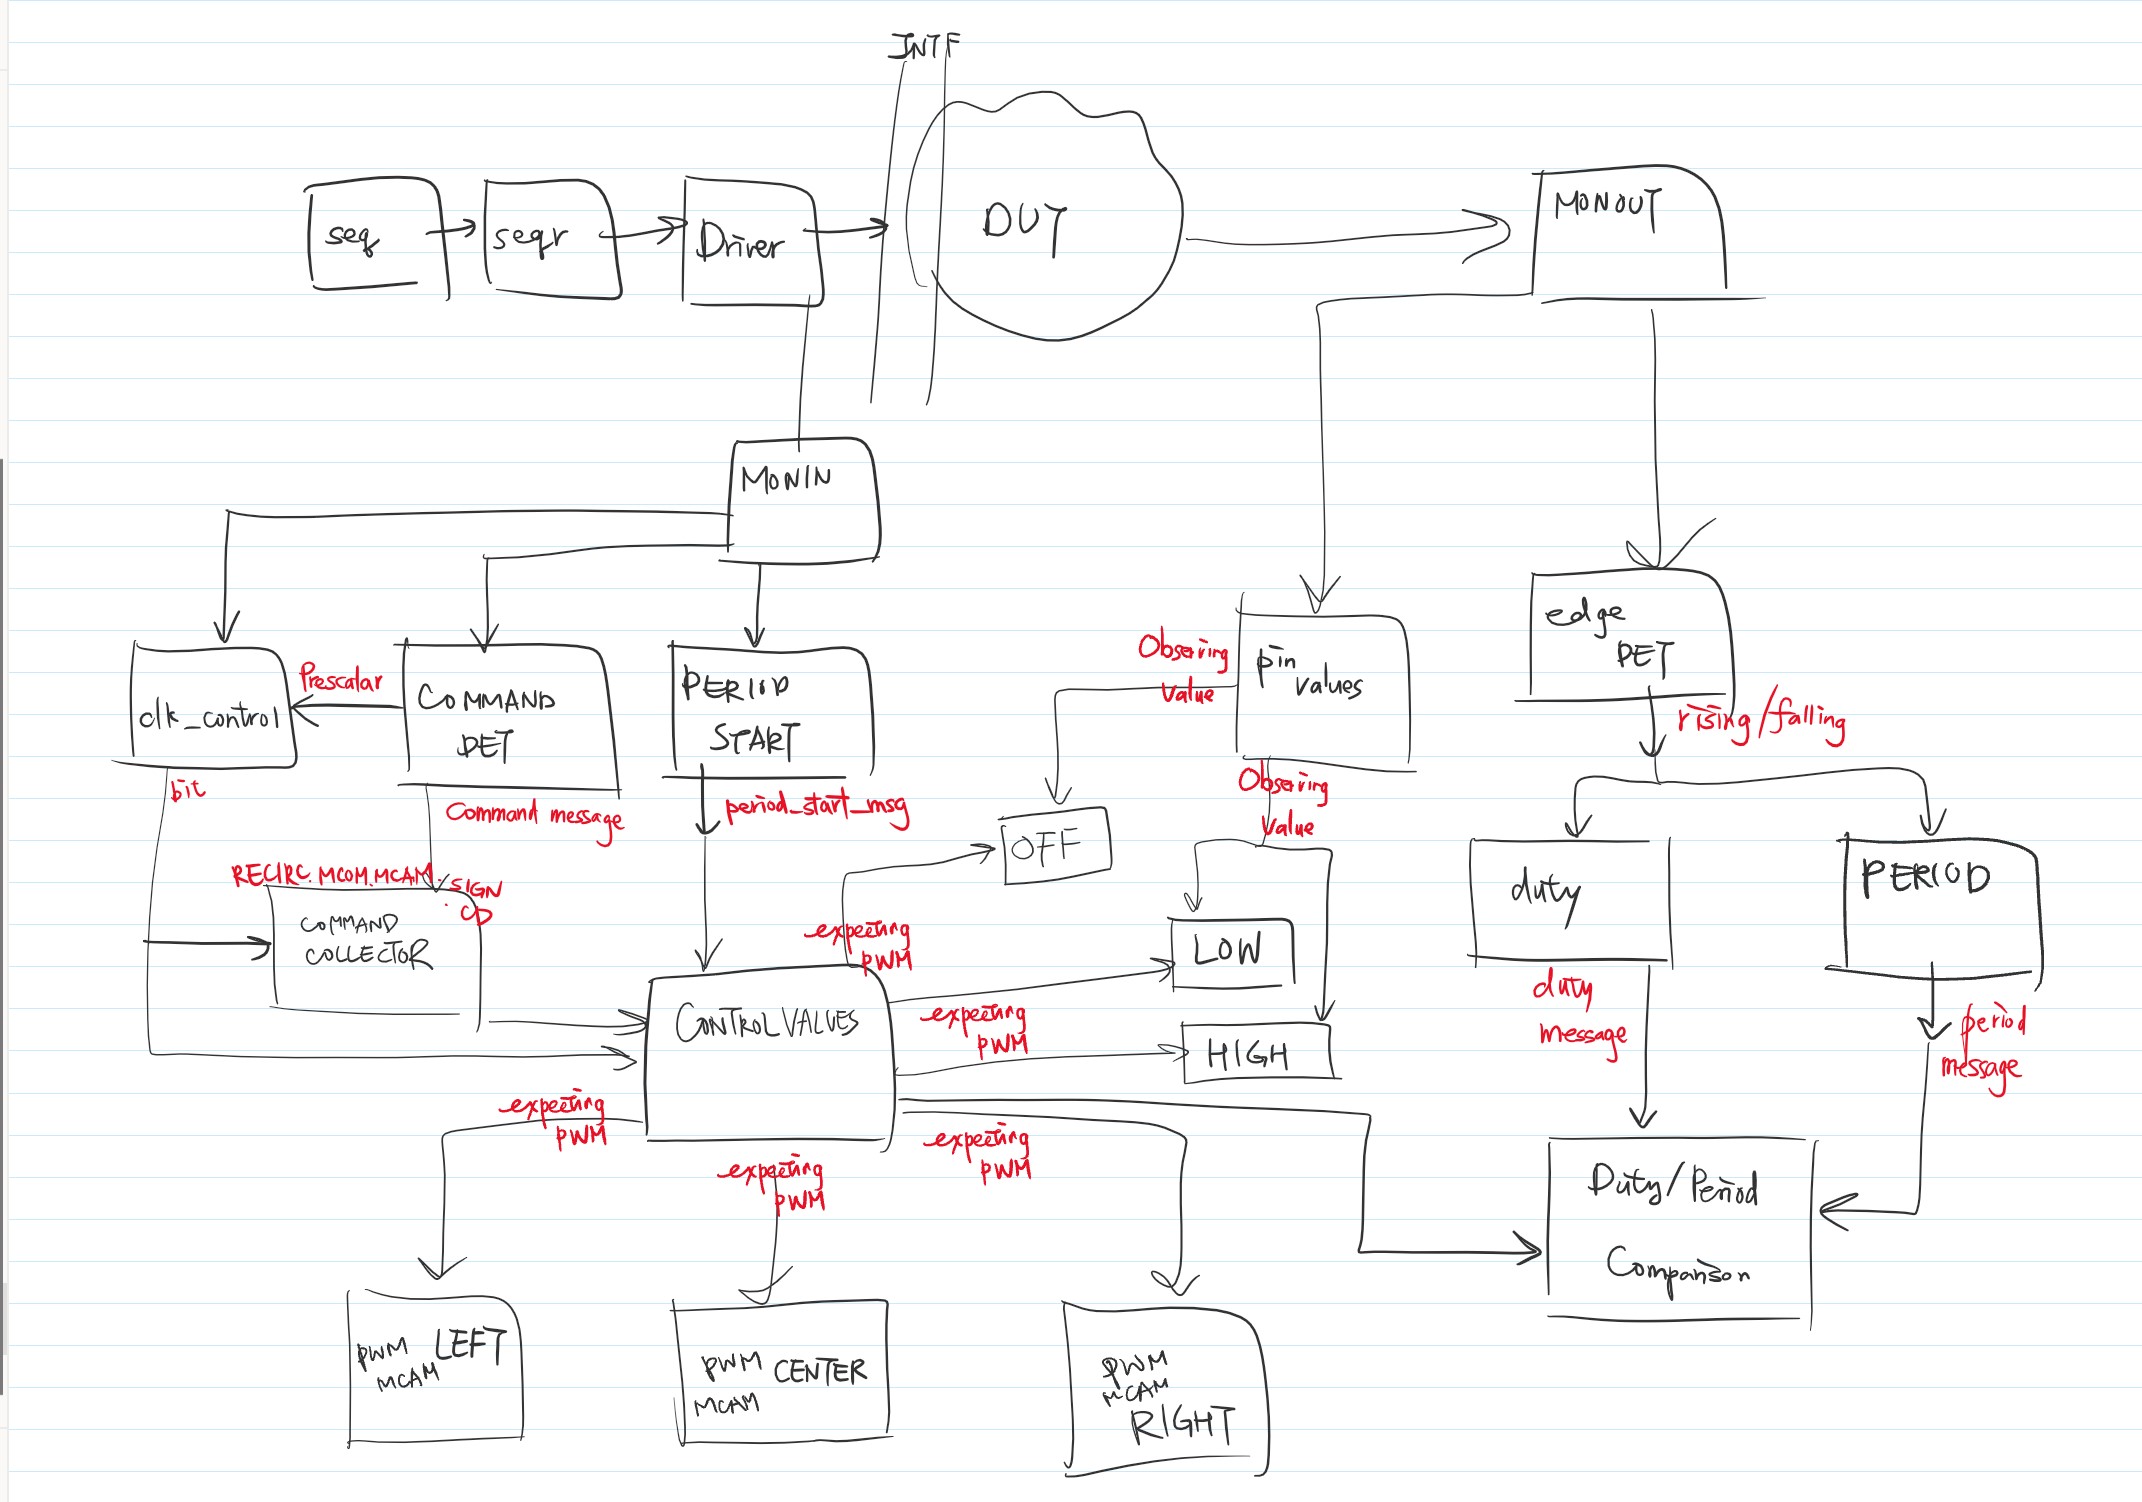 INTF
seq
seqr
Driver
DUT
MONOUT
MONIN
clk_control
Prescalar
COMMAND
DET
PERIOD
START
Observing
Value
pin
values
edge
DET
rising/falling
bit
Command message
period_start_msg
Observing
Value
OFF
RECIRC. MCOM. MCAM.
. SIGN
CD
COMMAND
COLLECTOR
expecting
PWM
LOW
duty
PERIOD
CONTROLVALUES
expecting
PWM
HIGH
duty
message
period
message
expecting
PWM
expecting
PWM
expecting
PWM
Duty/Period
Comparison
PWM LEFT
MCAM
PWM CENTER
MCAM
PWM
MCAM
RIGHT